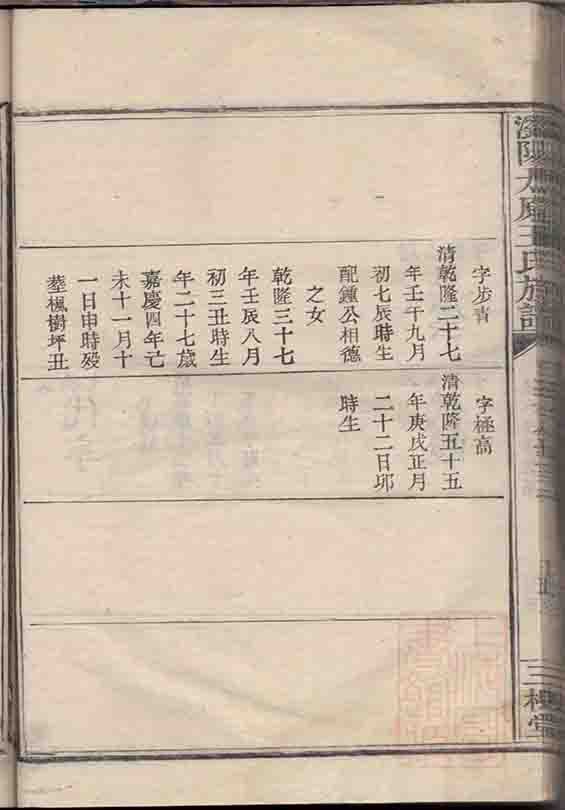 字步青
清乾隆二十七
年壬午九月
初七辰時生
配鍾公相德
之女
乾隆三十七
年壬辰八月
初三丑時生
年二十七歲
嘉慶四年己
未十一月十
一日申時殁
塟楓樹坪丑
字極高
清乾隆五十五
年庚戌正月
二十二日卯
時生
王氏族譜
三槐堂